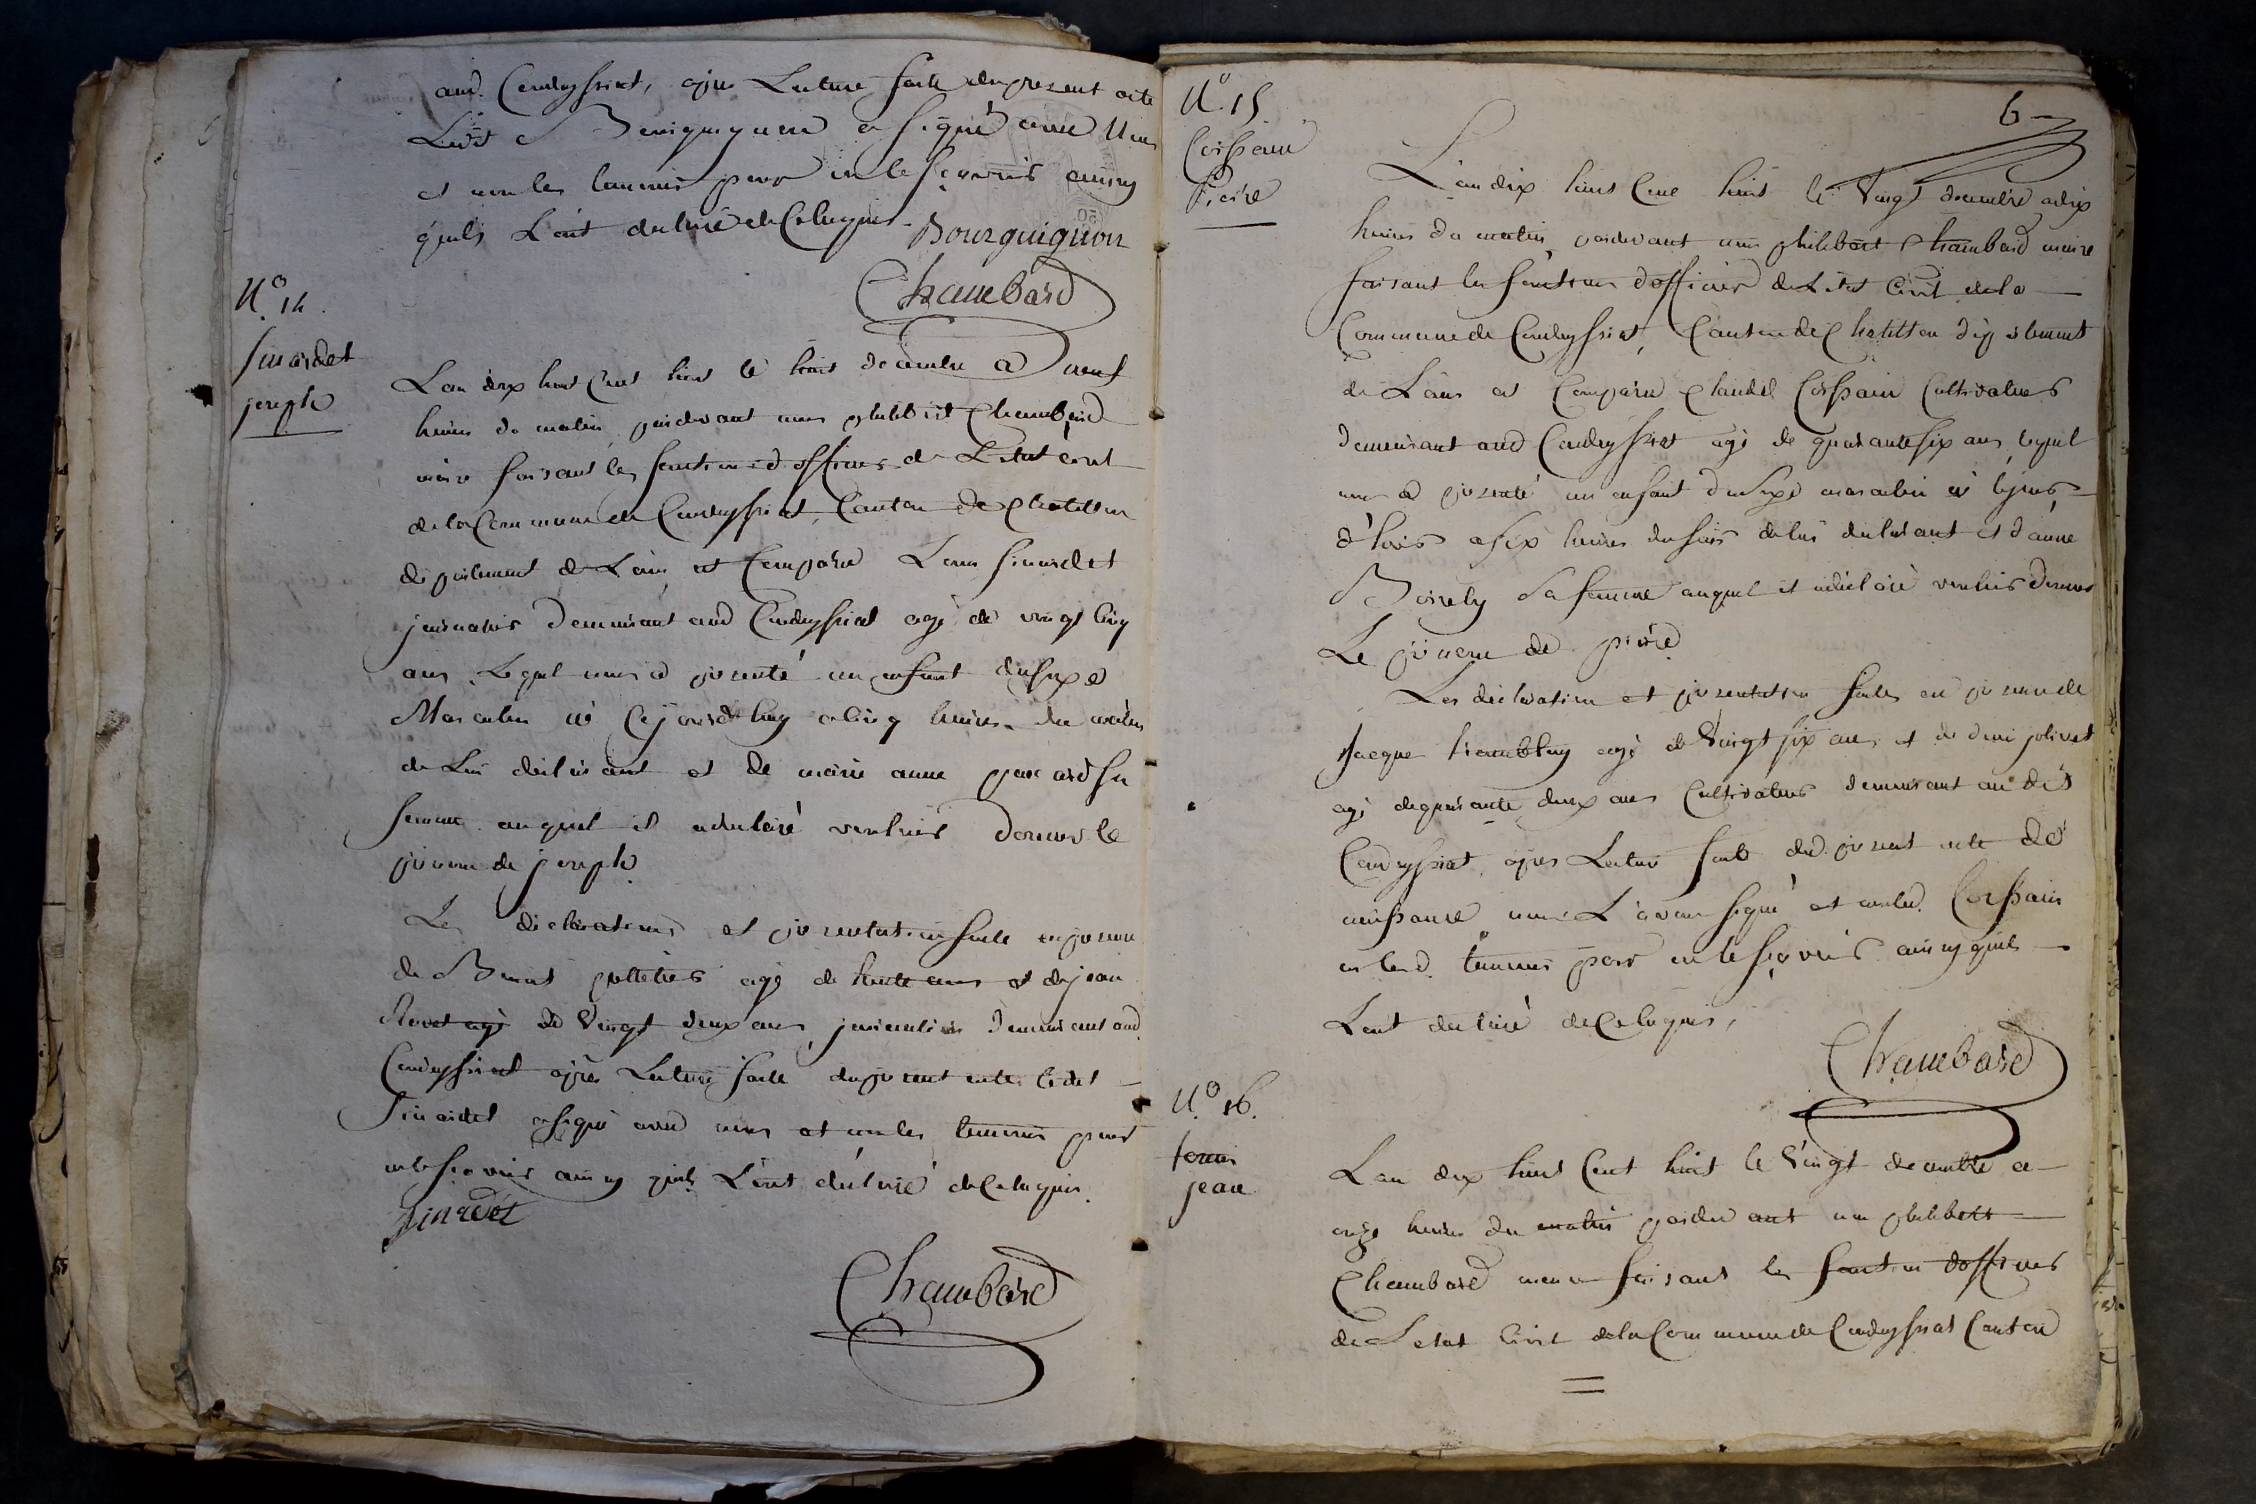 aud. Condeyssiat, après Lecture faite du present acte
Ledit Bourguignon a signé avec Nous
et non les temoins pour ne le sçavoir ainsy
qu'ils L'ont declaré de Ce Requis
Bourguignon
Chambard
N.º 14.
Sinardet
joseph
L'an dix huit Cent huit le trois decembre a neuf
heures du matin pardevant nous philibert Chambard
maire faisant les fonctions d'officier de L'Etat Civil
de la Commune de Condeyssiat, Canton de Chatillon
departement de L'ain est Comparu Sinardet
journalier demeurant aud Condeyssiat agé de vingt Cinq
ans Lequel nous a presenté un enfant du sexe
Masculin né Cejourd'huy a Cinq heures du matin
de Lui declarant et de marie anne sa
femme auquel il a declaré vouloir donner le
prenom de joseph
Les declarations et presentation faite en presence
de Benoit pelletier agé de trente ans et de jean
agé de Vingt deux ans, journaliers demeurant aud.
Condeyssiat après Lecture faite du present acte ledit
Sinardet a signé avec nous et non les temoins pour
ne le sçavoir ainsy qu'ils L'ont declaré de Ce requis.
Sinardet
Chambard
6
N.º 15.
Corssain
Pierre
L'an dix huit Cent huit le Vingt decembre a dix
heures du matin pardevant nous philibert Chambard maire
faisant les fonctions d'officier de L'état Civil de la
Commune de Condeyssiat, Canton de Chatillon departement
de L'ain est Comparu Claude Corssain Cultivateur
demeurant aud Condeyssiat agé de quarante six ans lequel
nous a presenté un enfant du sexe masculin né le jour
d'hier a six heures du soir de lui declarant et d'anne
sa femme auquel il a declaré vouloir donner
Le prenom de pierre
Les declaration et presentation faites en presence de
Jacque agé de Vingt six ans et de jolivet
agé de quarante deux ans Cultivateurs demeurant au dit
Condeyssiat, après Lecture faite dud. present acte de
naissance nous L'avons signé et non led. Corssain
et les d. temoins pour ne le sçavoir ainsy qu'ils
L'ont declaré de Ce requis,
Chambard
N.º 16.
jean
L'an dix huit Cent huit le Vingt decembre a
onze heures du matin pardevant nous philibert
Chambard maire faisant les fonctions d'officier
de L'etat Civil de la Commune de Condeyssiat Canton